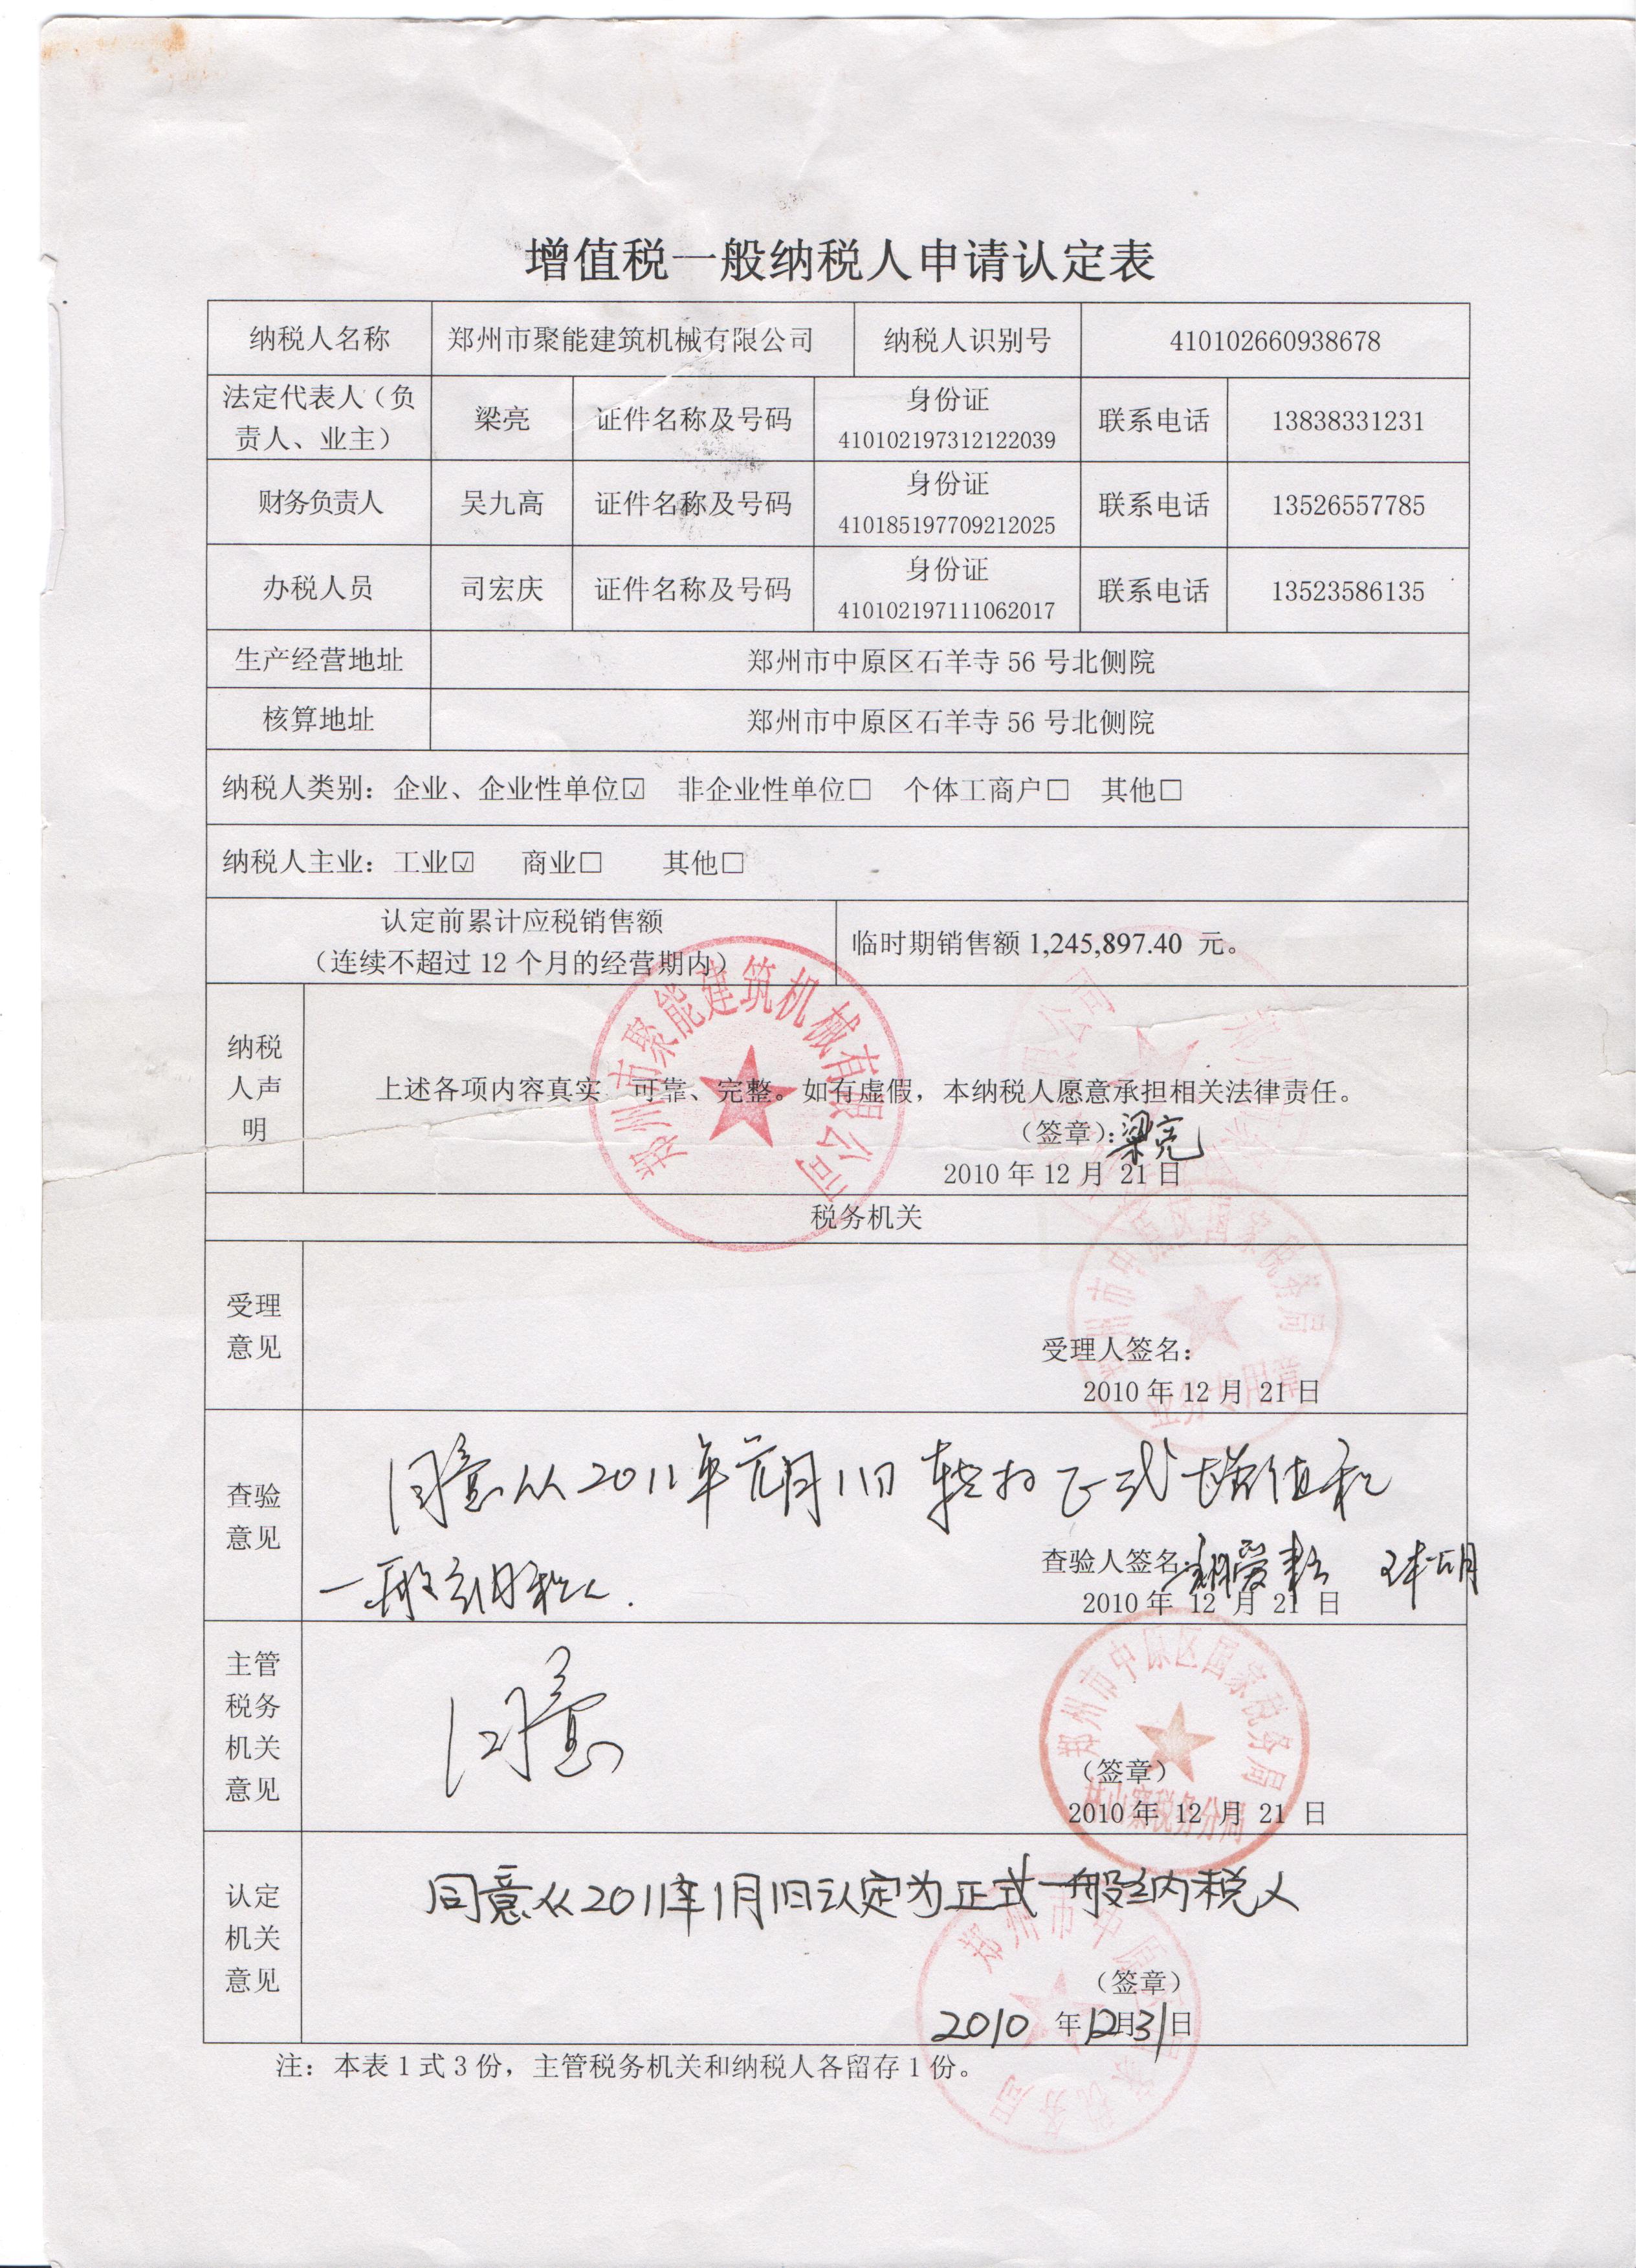 增值税一般纳税人申请认定表
纳税人名称 郑州市聚能建筑机械有限公司 纳税人识别号 410102660938678
法定代表人（负责人、业主） 梁亮 证件名称及号码 身份证 410102197312122039 联系电话 13838331231
财务负责人 吴九高 证件名称及号码 身份证 410185197709212025 联系电话 13526557785
办税人员 司宏庆 证件名称及号码 身份证 410102197111062017 联系电话 13523586135
生产经营地址 郑州市中原区石羊寺 56 号北侧院
核算地址 郑州市中原区石羊寺 56 号北侧院
纳税人类别：企业、企业性单位☑ 非企业性单位□ 个体工商户□ 其他□
纳税人主业：工业☑ 商业□ 其他□
认定前累计应税销售额
（连续不超过 12 个月的经营期内）
临时期销售额 1,245,897.40 元。
纳税人声明
上述各项内容真实 可靠、完整。如有虚假，本纳税人愿意承担相关法律责任。
（签章）：梁亮
2010 年 12 月 21 日
郑州市聚能建筑机械有限公司
税务机关
受理意见
受理人签名：
2010 年 12 月 21 日
郑州市中原区国家税务局
业务专用章
查验意见
同意从2011年元月1日转为正式增值税
一般纳税人.
查验人签名：
2010 年 12 月 21 日
主管税务机关意见
同意
（签章）
2010 年 12 月 21 日
郑州市中原区国家税务局
林山寨税务分局
认定机关意见
同意从2011年1月1日认定为正式一般纳税人
（签章）
2010 年12月31日
郑州市中原区国家税务局
注：本表 1 式 3 份，主管税务机关和纳税人各留存 1 份。